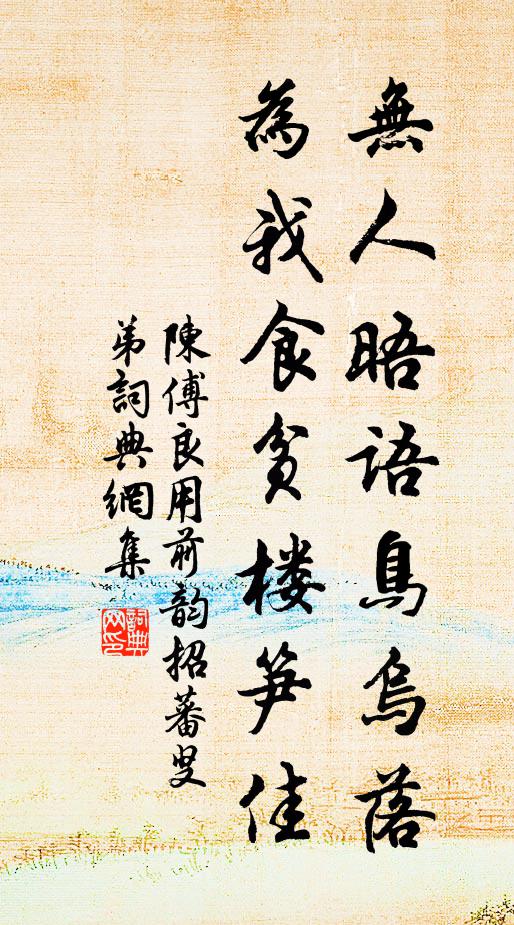 無人晤語鳥烏落
為我食貧楼笋佳
陳傅良用前韵招蕃叟
弟詞典網集
詞典网印